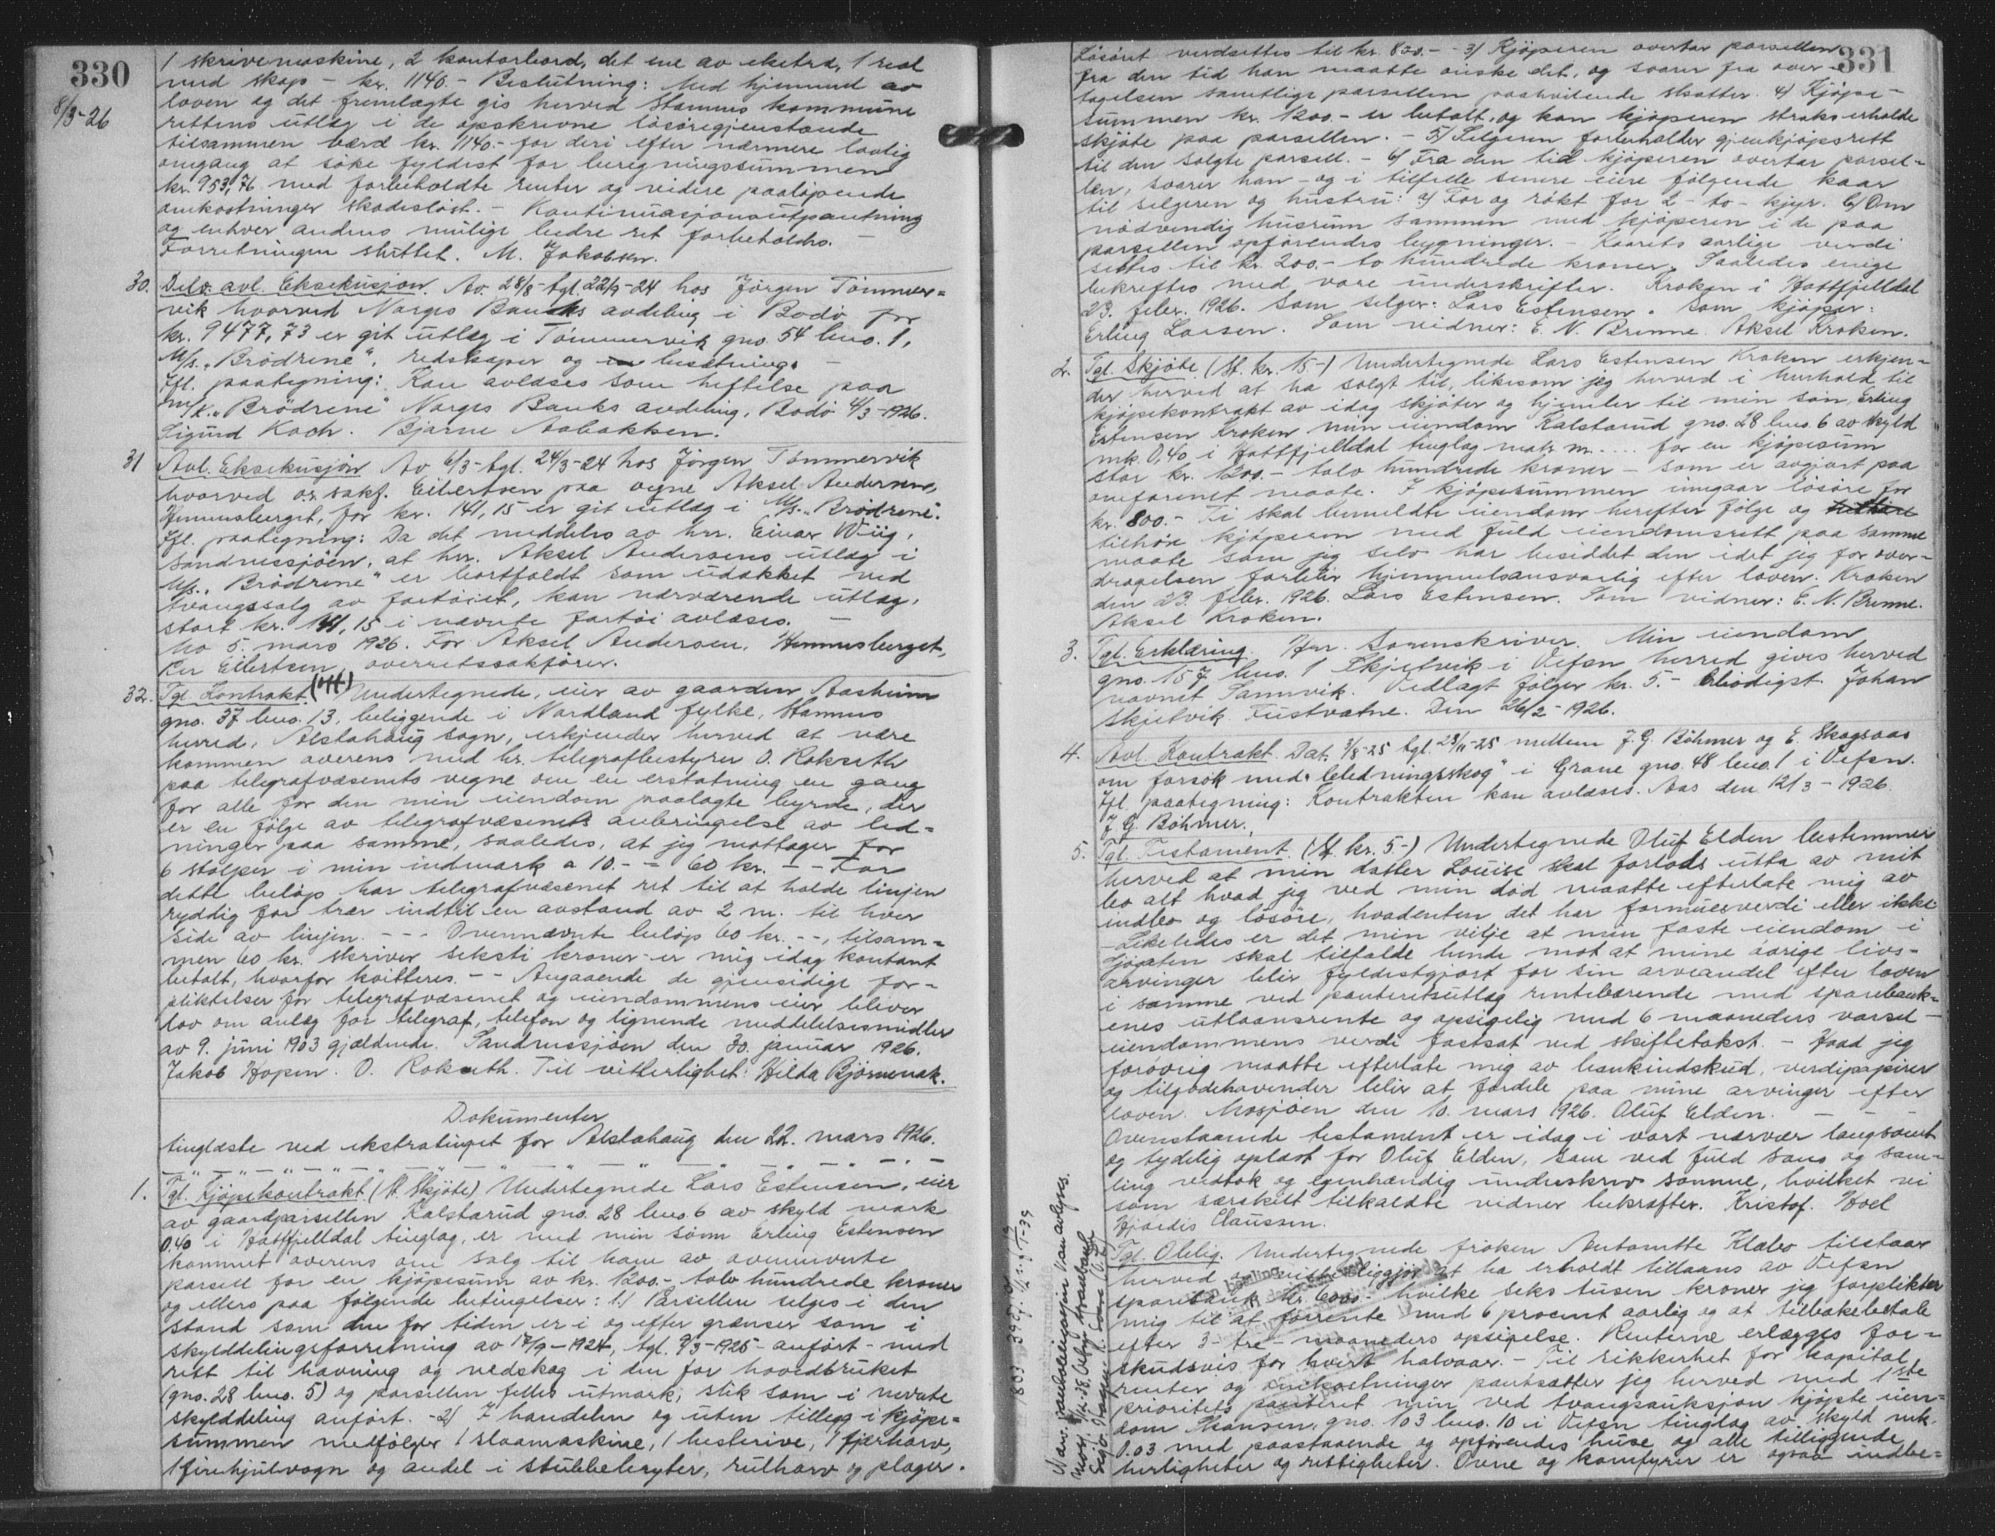 330
8/3-26
1 skrivemaskine, 2 kontorbord, det ene av eketre, 1 reol
med skap - kr. 1140.- Beslutning: Med hjemmel av
loven og det fremlagte gis herved Stamnes kommune
rettens utlæg i de opskrevne løsøregjenstande
tilsammen værd kr. 1140.- for deri efter nærmere lovlig
omgang at søke fyldest for beregningssummen
kr. 953,76 med forbeholdte renter og videre paaløpende
omkostninger skadesløst. - Kontinuasjonsutpantning
og enhver anden mulige bedre ret forbeholdes. -
Forretningen sluttet. M. Jakobsen.
30. Delv. avl. Eksekusjon. Av 28/8- tgl. 22/9-24 hos Jörgen Tömmer=
vik hvorved Norges Banks avdeling i Bodö for
kr. 9477,73 er git utlæg i Tömmervik gno. 54 bno. 1,
M/s. "Brödrene", redskaper og besetning. -
Ifl. paategning: Kan avlæses som heftelse paa
m/k. "Brödrene" Norges Banks avdeling, Bodö 4/3-1926.
Sigurd Koch. Bjarne Aabakken.
31 Avl. Eksekusjon Av 6/3- tgl. 24/3-24 hos Jörgen Tömmervik
hvorved o.r.sakf. Eilertsen paa vegne Aksel Andersen,
Hemnesberget, for kr. 141,15 er git utlæg i M/s. "Brödrene".
Ifl. paategning: Da det meddeles av hr. Einar Wiig,
Sandnessjöen, at hr. Aksel Andersens utlæg i
M/s. "Brödrene" er bortfaldt som udækket ved
tvangssalg av fartöiet, kan nærværende utlæg,
stort kr. 141,15 i nævnte fartöi avlæses. -
Mo 5. mars 1926. For Aksel Andersen, Hemnesberget,
Per Eilertsen, overretssakförer.
32. Tgl. Kontrakt. Undertegnede, eier av gaarden Aasheim
gno. 37 bno. 13, beliggende i Nordland fylke, Stamnes
herred, Alstahaug sogn, erkjender herved at være
kommen overens med hr. telegrafbestyrer O. Rokseth
paa telegrafvæsenets vegne om en erstatning en gang
for alle for den min eiendom paalagte byrde, der
er en fölge av telegrafvæsenets anbringelse av led=
ninger paa samme, saaledes, at jeg mottager for
6 stolper i min indmark a 10.- = 60 kr. - - For
dette belöp har telegrafvæsenet ret til at holde linjen
ryddig for trær indtil en avstand av 2 m. til hver
side av linjen. - - - Ovennævnte belöp 60 kr. - -, tilsam=
men 60 kr. skriver seksti kroner er mig idag kontant
betalt, hvorfor kvitteres. - - Angaaende de gjensidige for=
pliktelser for telegrafvæsenet og eiendommens eier bliver
lov om anlæg for telegraf, telefon og lignende meddelelsesmidler
av 9. juni 1903 gjældende. Sandnessjöen den 30. januar 1926.
Jakob Hopen. O. Rokseth. Til vitterlighet: Hilda Björnevak.
Dokumenter
tinglæste ved ekstratinget for Alstahaug den 22. mars 1926.
1. Tgl. Kjöpekontrakt. (St. Skjöte) Undertegnede Lars Estensen, eier
av gaardparsellen Kalstarud gno. 28 bno 6 av skyld mark
0,40 i Hatfjelldal tinglag, er med min sönn Erling Estensen
kommet overens om salg til ham av ovennevnte
parsell for en kjöpesum av kr. 1200.- tolv hundrede kroner
og ellers paa fölgende betingelser: 1.) Parsellen selges i den
stand som den for tiden er i og efter grænser som i
skylddelingsforretning av 17/9-1924, tgl. 9/3-1925 - anfört - med
rett til havning og vedskog i den for hovedbruket
(gno. 28 bno. 5) og parsellen felles utmark, slik som i nevnte
skylddeling anfört. - 2) I handelen og uten tillegg i kjöpe=
summen medfölger 1 slaamaskine, 1 hesterive, 1 fjærharv,
1 firehjulvogn og andel i stubbebryter, rulharv og ploger.
331
Lösöret verdsettes til kr. 800.- - 3) Kjöperen overtar parsellen
fra den tid han maatte önske det, og svarer fra over-
tagelsen samtlige parsellen paahvilende skatter. 4) Kjöpe-
summen kr. 1200.- er betalt, og kan kjöperen straks erholde
skjöte paa parsellen. - 5) Selgeren forbeholder gjenkjöpsrett
til den solgte parsell. - 6) Fra den tid kjöperen overtar parsel=
len, svarer han - og i tilfelle senere eiere fölgende kaar
til selgeren og hustru: a) For og rökt for 2 - to - kjyr. b) Om
nödvendig husrum sammen med kjöperen i de paa
parsellen opförendes bygninger. - Kaarets aarlige verdi
settes til kr. 200.- to hundrede kroner. Saaledes enige
bekreftes med vare underskrifter. Kroken i Hattfjelldal
23. febr. 1926. Som selger: Lars Estensen. Som kjöper:
Erling Larsen. Som vidner: E. N. Brenne. Aksel Kroken.
2. Tgl. Skjöte. (St. kr. 15-) Undertegnede Lars Estensen Kroken erkjen=
der herved at ha solgt til, likesom jeg herved i henhold til
kjöpekontrakt av idag skjöter og hjemler til min sön, Erling
Estensen Kroken min eiendom Kalstarud gno. 28 bno. 6 av skyld
mk. 0,40 i Hattfjelldal tinglag matr. nr. .... for en kjöpesum
stor kr. 1200.- tolv hundrede kroner - som er avgjort paa
omforenet maate. I kjöpesummen inngaar lösöre for
kr. 800.- Ti skal bemeldte eiendom herefter fölge og
tilhöre kjöperen med fuld eiendomsrett paa samme
maate som jeg selv har besiddet den idet jeg for over-
dragelsen forblir hjemmelsansvarlig efter loven. Kroken
den 23. febr. 1926. Lars Estensen. Som vidner: E. N. Brenne.
Aksel Kroken.
3. Tgl. Erklæring. Herr Sorenskriver. Min eiendom
gno. 157 bno. 1 Skjelvik i Vefsn herred gives herved
navnet Tannvik. Vedlagt fölger kr. 5.- Erbödigst Johan
Skjelvik. Fustvatne. Den 26/2-1926.
4. Avl. Kontrakt. Dat. 3/8-25 tgl. 23/11-25 mellem J. G. Böhmer og E. Skogsaas
om forsök med "bledningsskog" i Grane gno. 48 bno. 1 i Vefsn.
Ifl. paategning: Kontrakten kan avlæses. Aas den 12/3-1926.
J. G. Böhmer.
5. Tgl. Testament. (St. kr. 5-) Undertegnede Oluf Elden bestemmer
herved at min datter Louise skal forlods utta av mit
bo alt hvad jeg ved min död maatte efterlate mig av
indbo og lösöre, hvadenten det har formuesverdi eller ikke
- Likeledes er det min vilje at min faste eiendom i
skal tilfalde hende mot at mine övrige livs-
arvinger blir fyldestgjort for sin arveandel efter loven
i samme ved panteretsutlæg rentebærende med sparebank=
enes utlaansrente og opsigelig med 6 maaneders varsel -
eiendommens verdi fastsat ved skiftetakst. - Hvad jeg
forövrig maatte efterlate mig av bankindskud, verdipapirer
og tilgodehavender blir at fordele paa mine arvinger efter
loven. Mosjöen den 10. mars 1926. Oluf Elden.
Ovenstaaende testament er idag i vort nærvær langsomt
og tydelig oplæst for Oluf Elden, som ved fuld sans og sam=
ling vedtok og egenhændig underskrev samme, hvilket vi
som særskilt tilkaldte vidner bekræfter. Kristof. Hoel
Hjördis Claussen.
Tgl. Oblig. Undertegnede fröken Antonette Klæbo tilstaar
herved og vitterliggjör at ha erholdt tillaans av Vefsn
sparebank kr. 6000.- hvilke seks tusen kroner jeg forplikter
mig til at forrente med 6 procent aarlig og at tilbakebetale
efter 3 - tre - maaneders opsigelse. Renterne erlægges for=
skudsvis for hvert halvaar. - Til sikkerhet for kapital
renter og omkostninger pantsætter jeg herved med 1ste
prioritets panteret min ved tvangsauksjon kjöpte eien=
dom Skansen, gno. 103 bno. 10 i Vefsn tinglag av skyld mk.
0.03 med paastaaende og opförendes huse og alle tilliggende
herligheter og rettigheter. Ovne og komfyrer er ogsaa indbe-